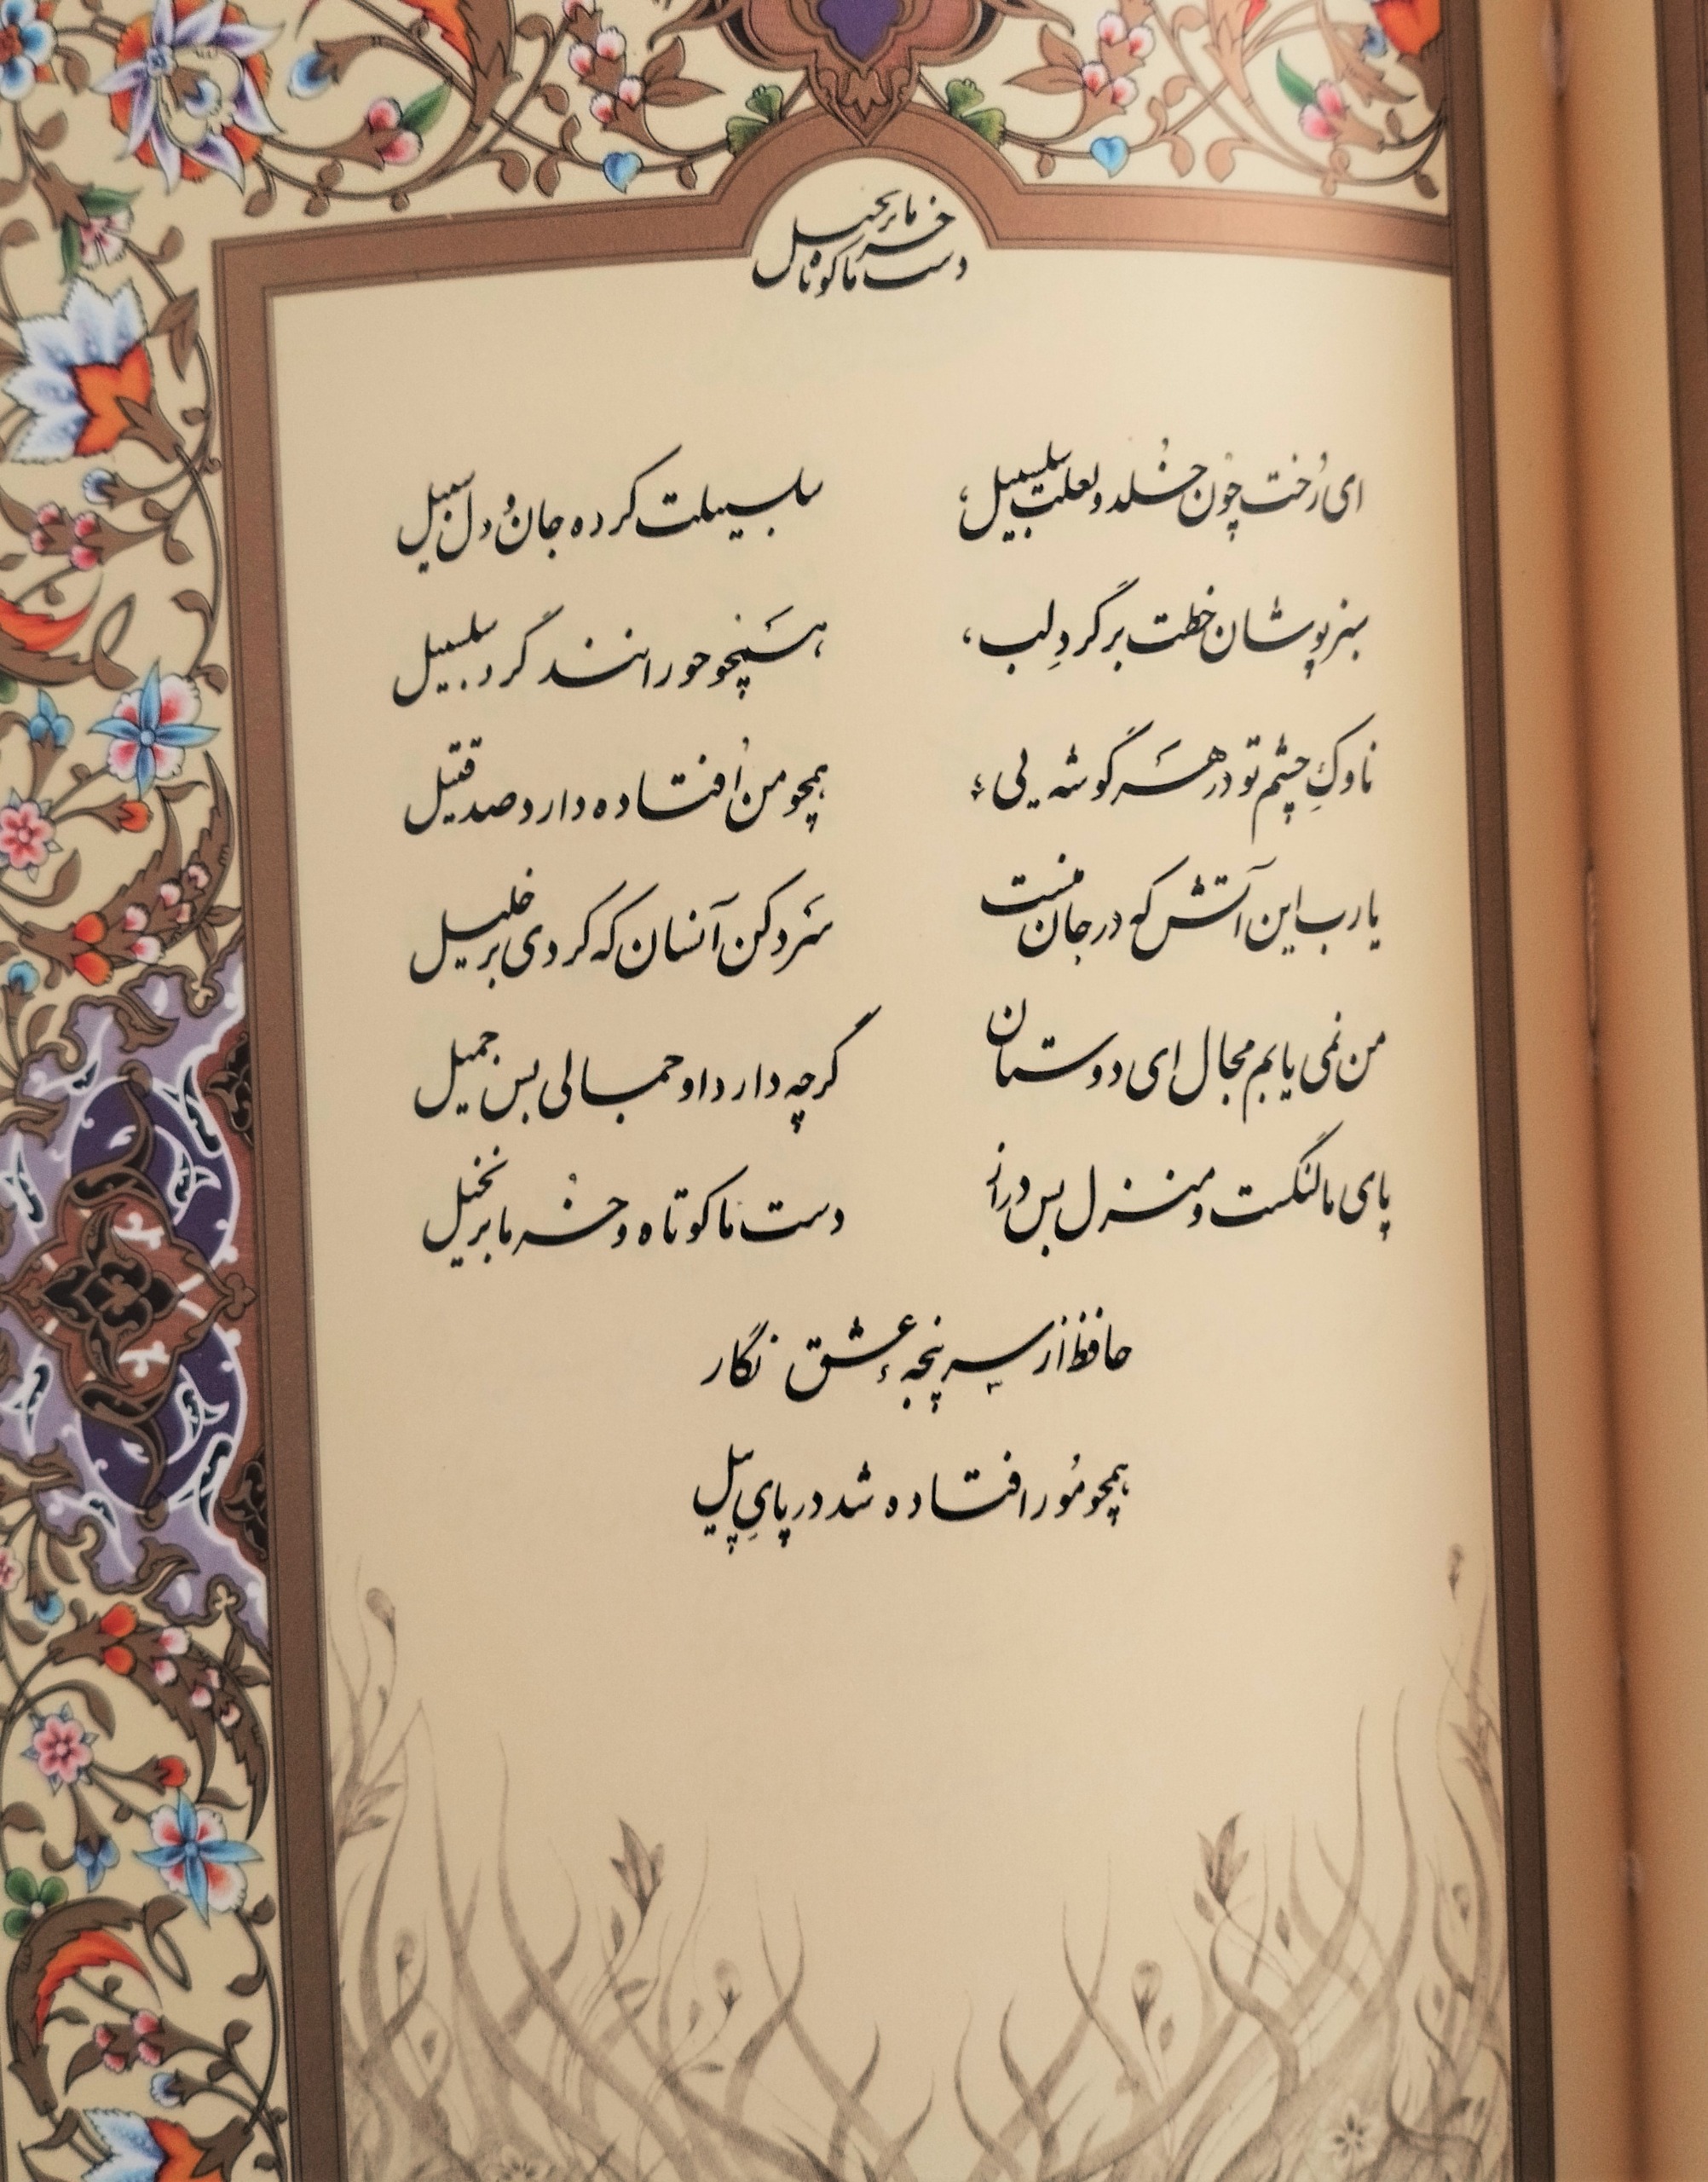 خرما بر نخیل
دست ما کوتاه
ای رُخت چون خُلد و لعلت سلسبیل،
سلسبیلت کرده جان و دل سبیل
سبزپوشان خطت بر گردِ لب،
همچو حورانند گرد سلسبیل
ناوکِ چشم تو در هر گوشه یی،
همچو من اُفتاده دارد صد قتیل
یارب این آتش که در جان منست
سرد کن آنسان که کردی بر خلیل
من نمی یابم مجال ای دوستان
گرچه دارد او جمالی بس جمیل
پای ما لنگست و منزل بس دراز
دست ما کوتاه و خرما بر نخیل
حافظ از سرپنجهء عشق نگار
همچو مُور افتاده شد در پایِ پیل